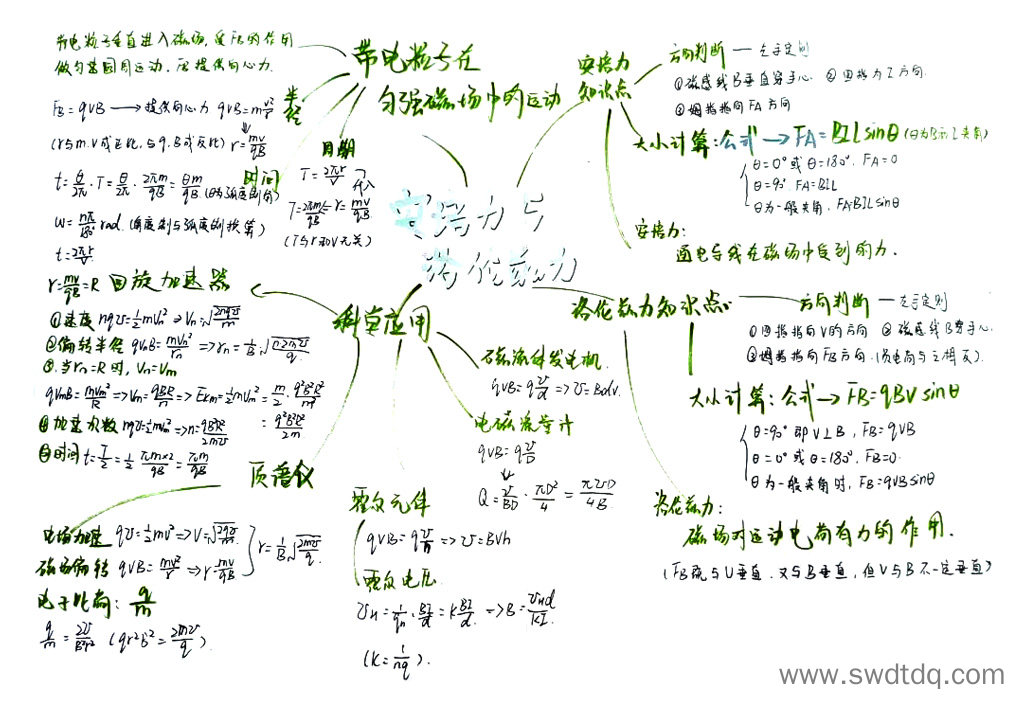 安培力与
洛伦兹力
带电粒子在
匀强磁场中的运动
带电粒子垂直进入磁场,受FB的作用
做匀速圆周运动,FB提供向心力.
半径
FB=qVB → 提供向心力 qVB=mv²/r
(r与m.V成正比,与q.B成反比) r=mv/qB
周期
T=2πr/V
代入
T=2πm/qB ← r=mv/qB
(T与r和V无关)
时间
t=θ/2π·T=θ/2π·2πm/qB=θm/qB (θ为弧度制角)
W=nπ/180° rad.(角度制与弧度制换算)
t=2πr/V
安培力
知识点
方向判断 — 左手定则
①磁感线B垂直穿手心. ②四指为I方向.
③拇指指向FA方向
大小计算:公式→FA=BILsinθ (θ为B和I夹角)
θ=0°或θ=180°. FA=0
θ=90°. FA=BIL
θ为一般夹角, FA=BILsinθ
安培力:
通电导线在磁场中受到的力.
洛伦兹力知识点
方向判断 — 左手定则
①四指指向V的方向 ②磁感线B穿手心.
③拇指指向FB方向.(负电荷与之相反)
大小计算:公式→FB=qBVsinθ
θ=90°即V⊥B, FB=qVB
θ=0°或θ=180°, FB=0.
θ为一般夹角时, FB=qVBsinθ
洛伦兹力:
磁场对运动电荷有力的作用.
(FB既与V垂直.又与B垂直,但V与B不一定垂直)
科学应用
回旋加速器
r=mv/qB=R
①速度 nqU=½mVn² ⇒ Vn=√(2nqU/m)
②偏转半径 qVnB=mVn²/rn ⇒ rn=1/B·√(n2mU/q)
③当rn=R时, Vn=Vm
qVmB=mVm²/R ⇒ Vm=qBR/m ⇒ Ekm=½mVm²=m/2·q²B²R²/m²
=q²B²R²/2m
④加速次数 nqU=½mVm² ⇒ n=qB²R²/2mU
⑤时间 t=T/2=½·πm×2/qB=πm/qB
质谱仪
电场加速 qU=½mv² ⇒ V=√(2qU/m)
磁场偏转 qVB=mv²/r ⇒ r=mv/qB
r=1/B·√(2mU/q)
电子比荷: q/m
q/m=2U/B²r² (qr²B²=2mU/q).
磁流体发电机
qVB=qU/d ⇒ U=Bdv.
电磁流量计
qVB=qU/D
Q=U/BD·πD²/4=πUD/4B
霍尔元件
qVB=qU/h ⇒ U=BVh
霍尔电压
UH=1/qn·BI/d=kBI/d ⇒ B=UHd/kI
(k=1/nq).
www.swdtdq.com